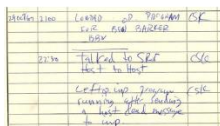 29 Oct 69 2100 LOADED OP. PROGRAM CSK
FOR BEN BARKER
BBN
22:30 Talked to SRI CSK
Host to Host
Left op. imp program CSK
running after sending
a host dead message
to imp.